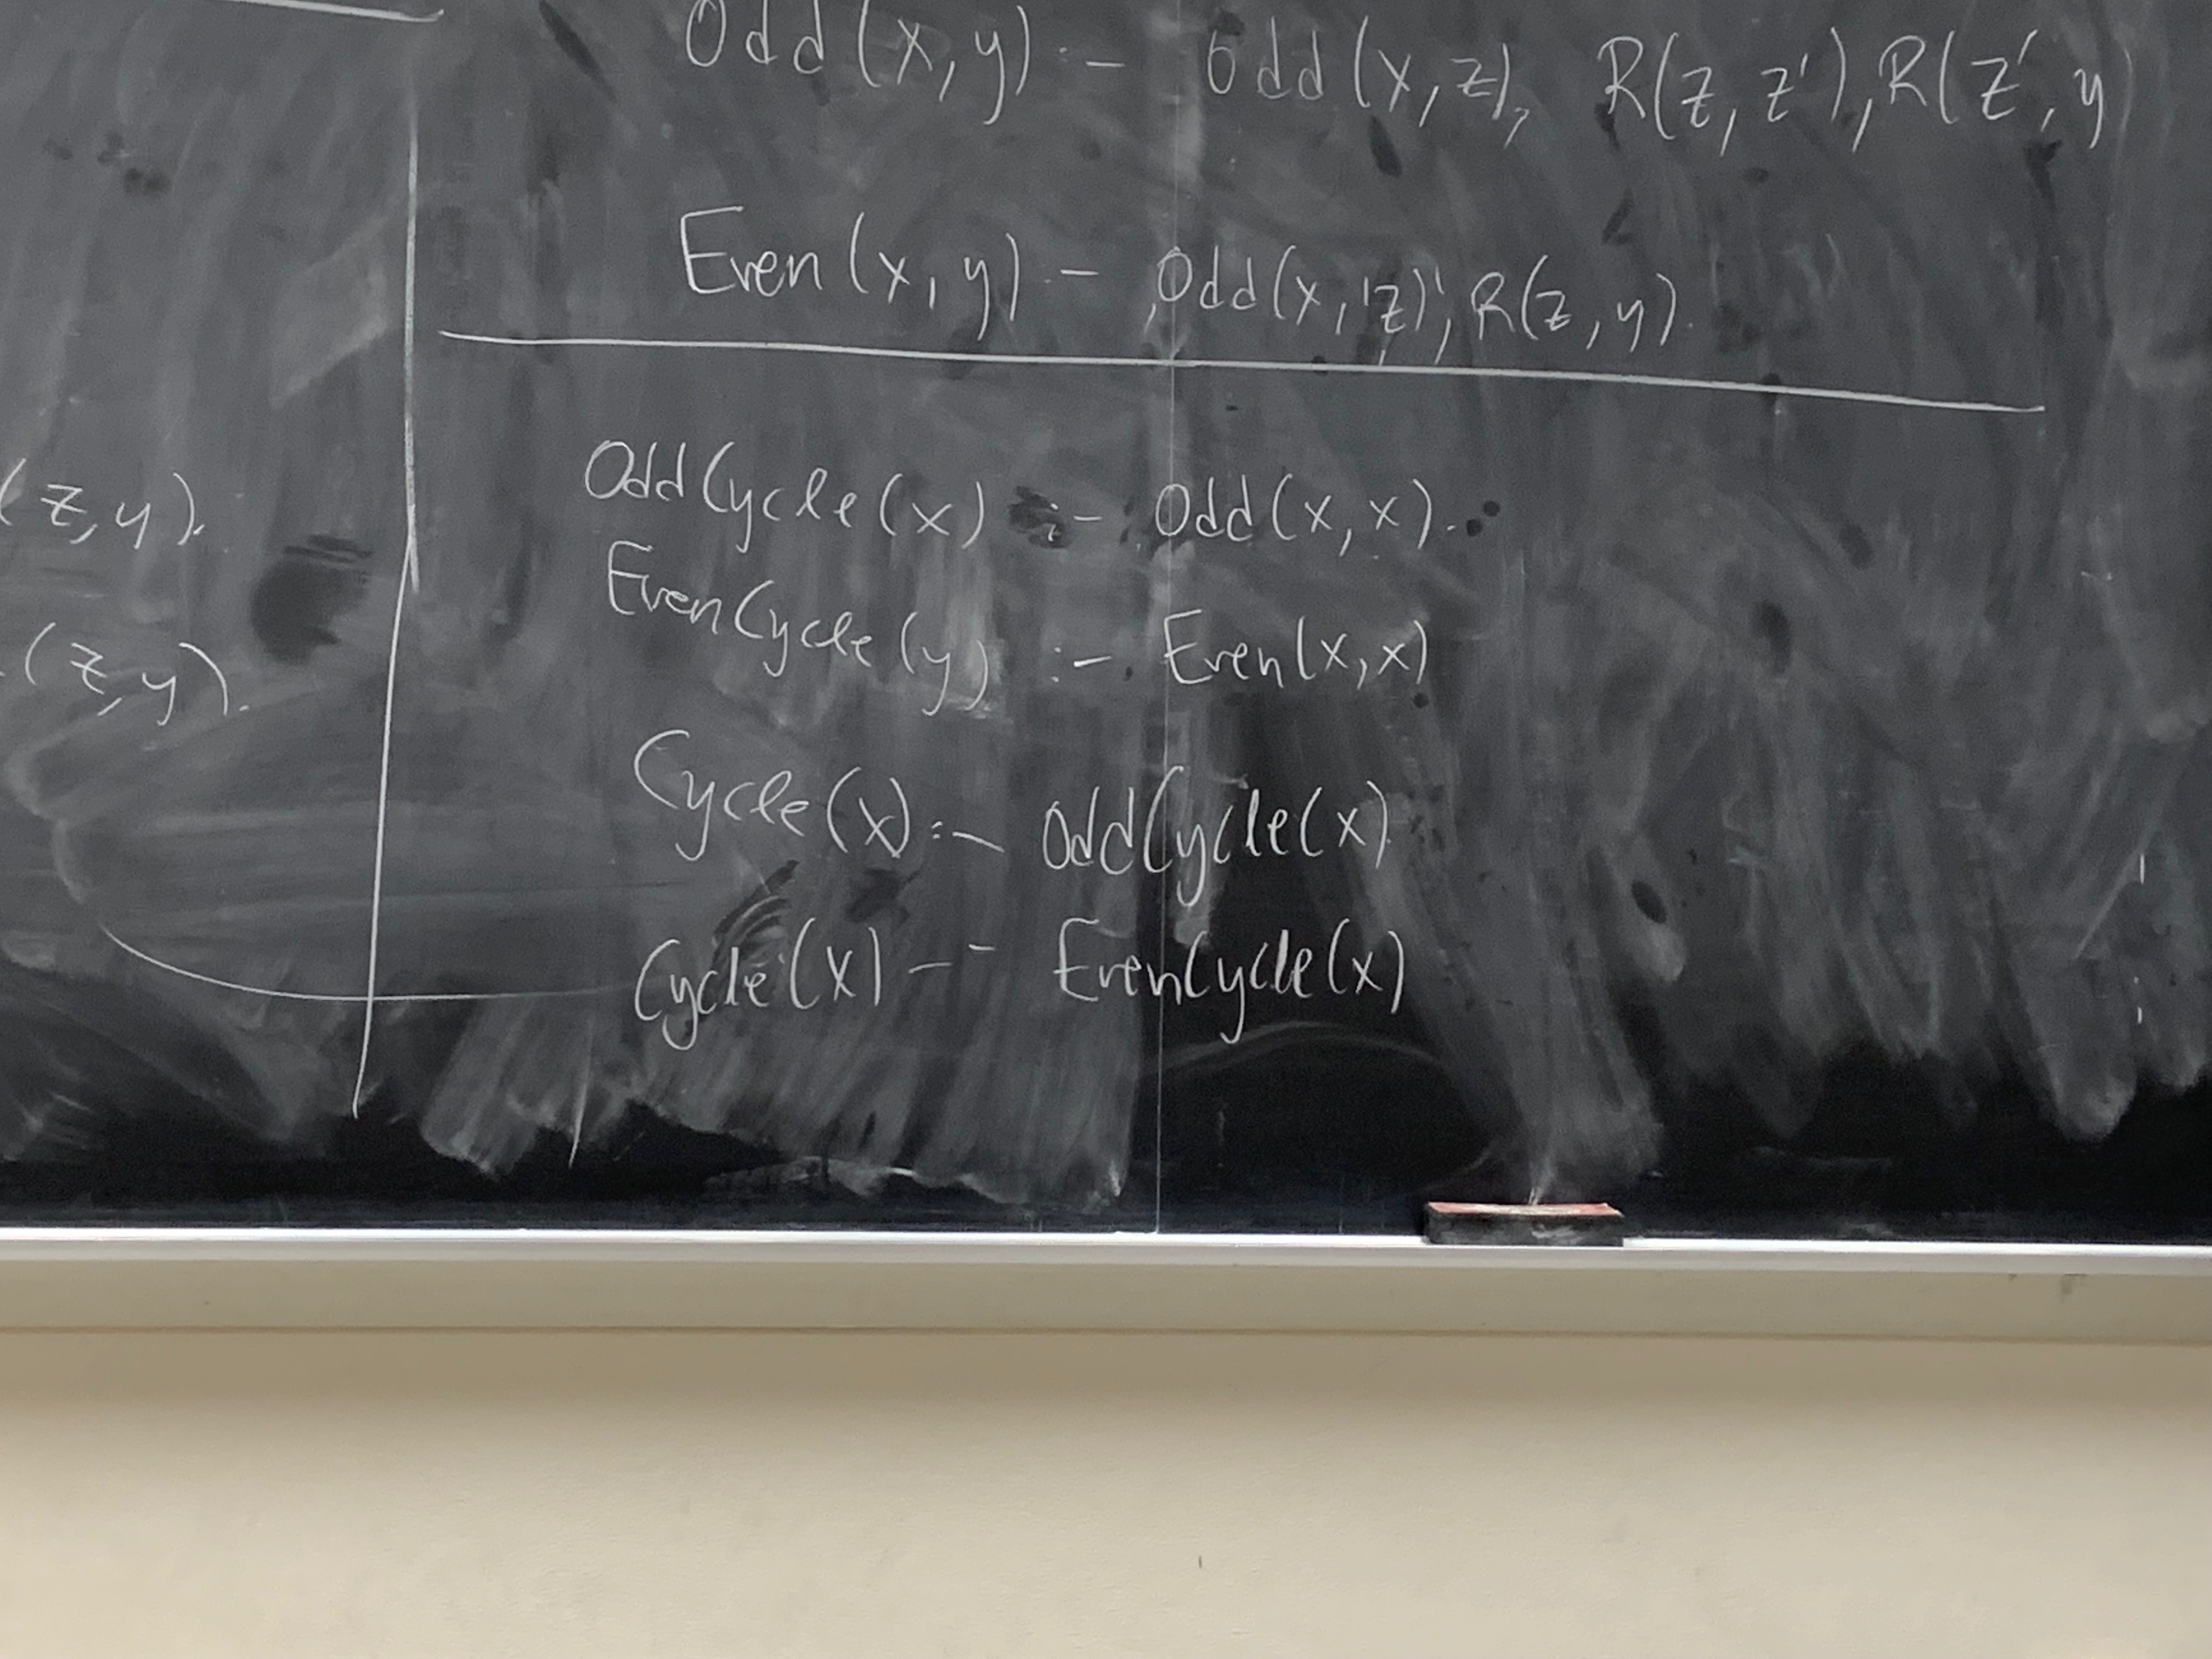 Odd(x,y) :- Odd(x,z), R(z,z'), R(z',y
Even(x,y) - Odd(x,z), R(z,y).
(z,y).
(z,y).
OddCycle(x) :- Odd(x,x).
EvenCycle(y) :- Even(x,x)
Cycle(x) :- OddCycle(x)
Cycle(x) -- EvenCycle(x)